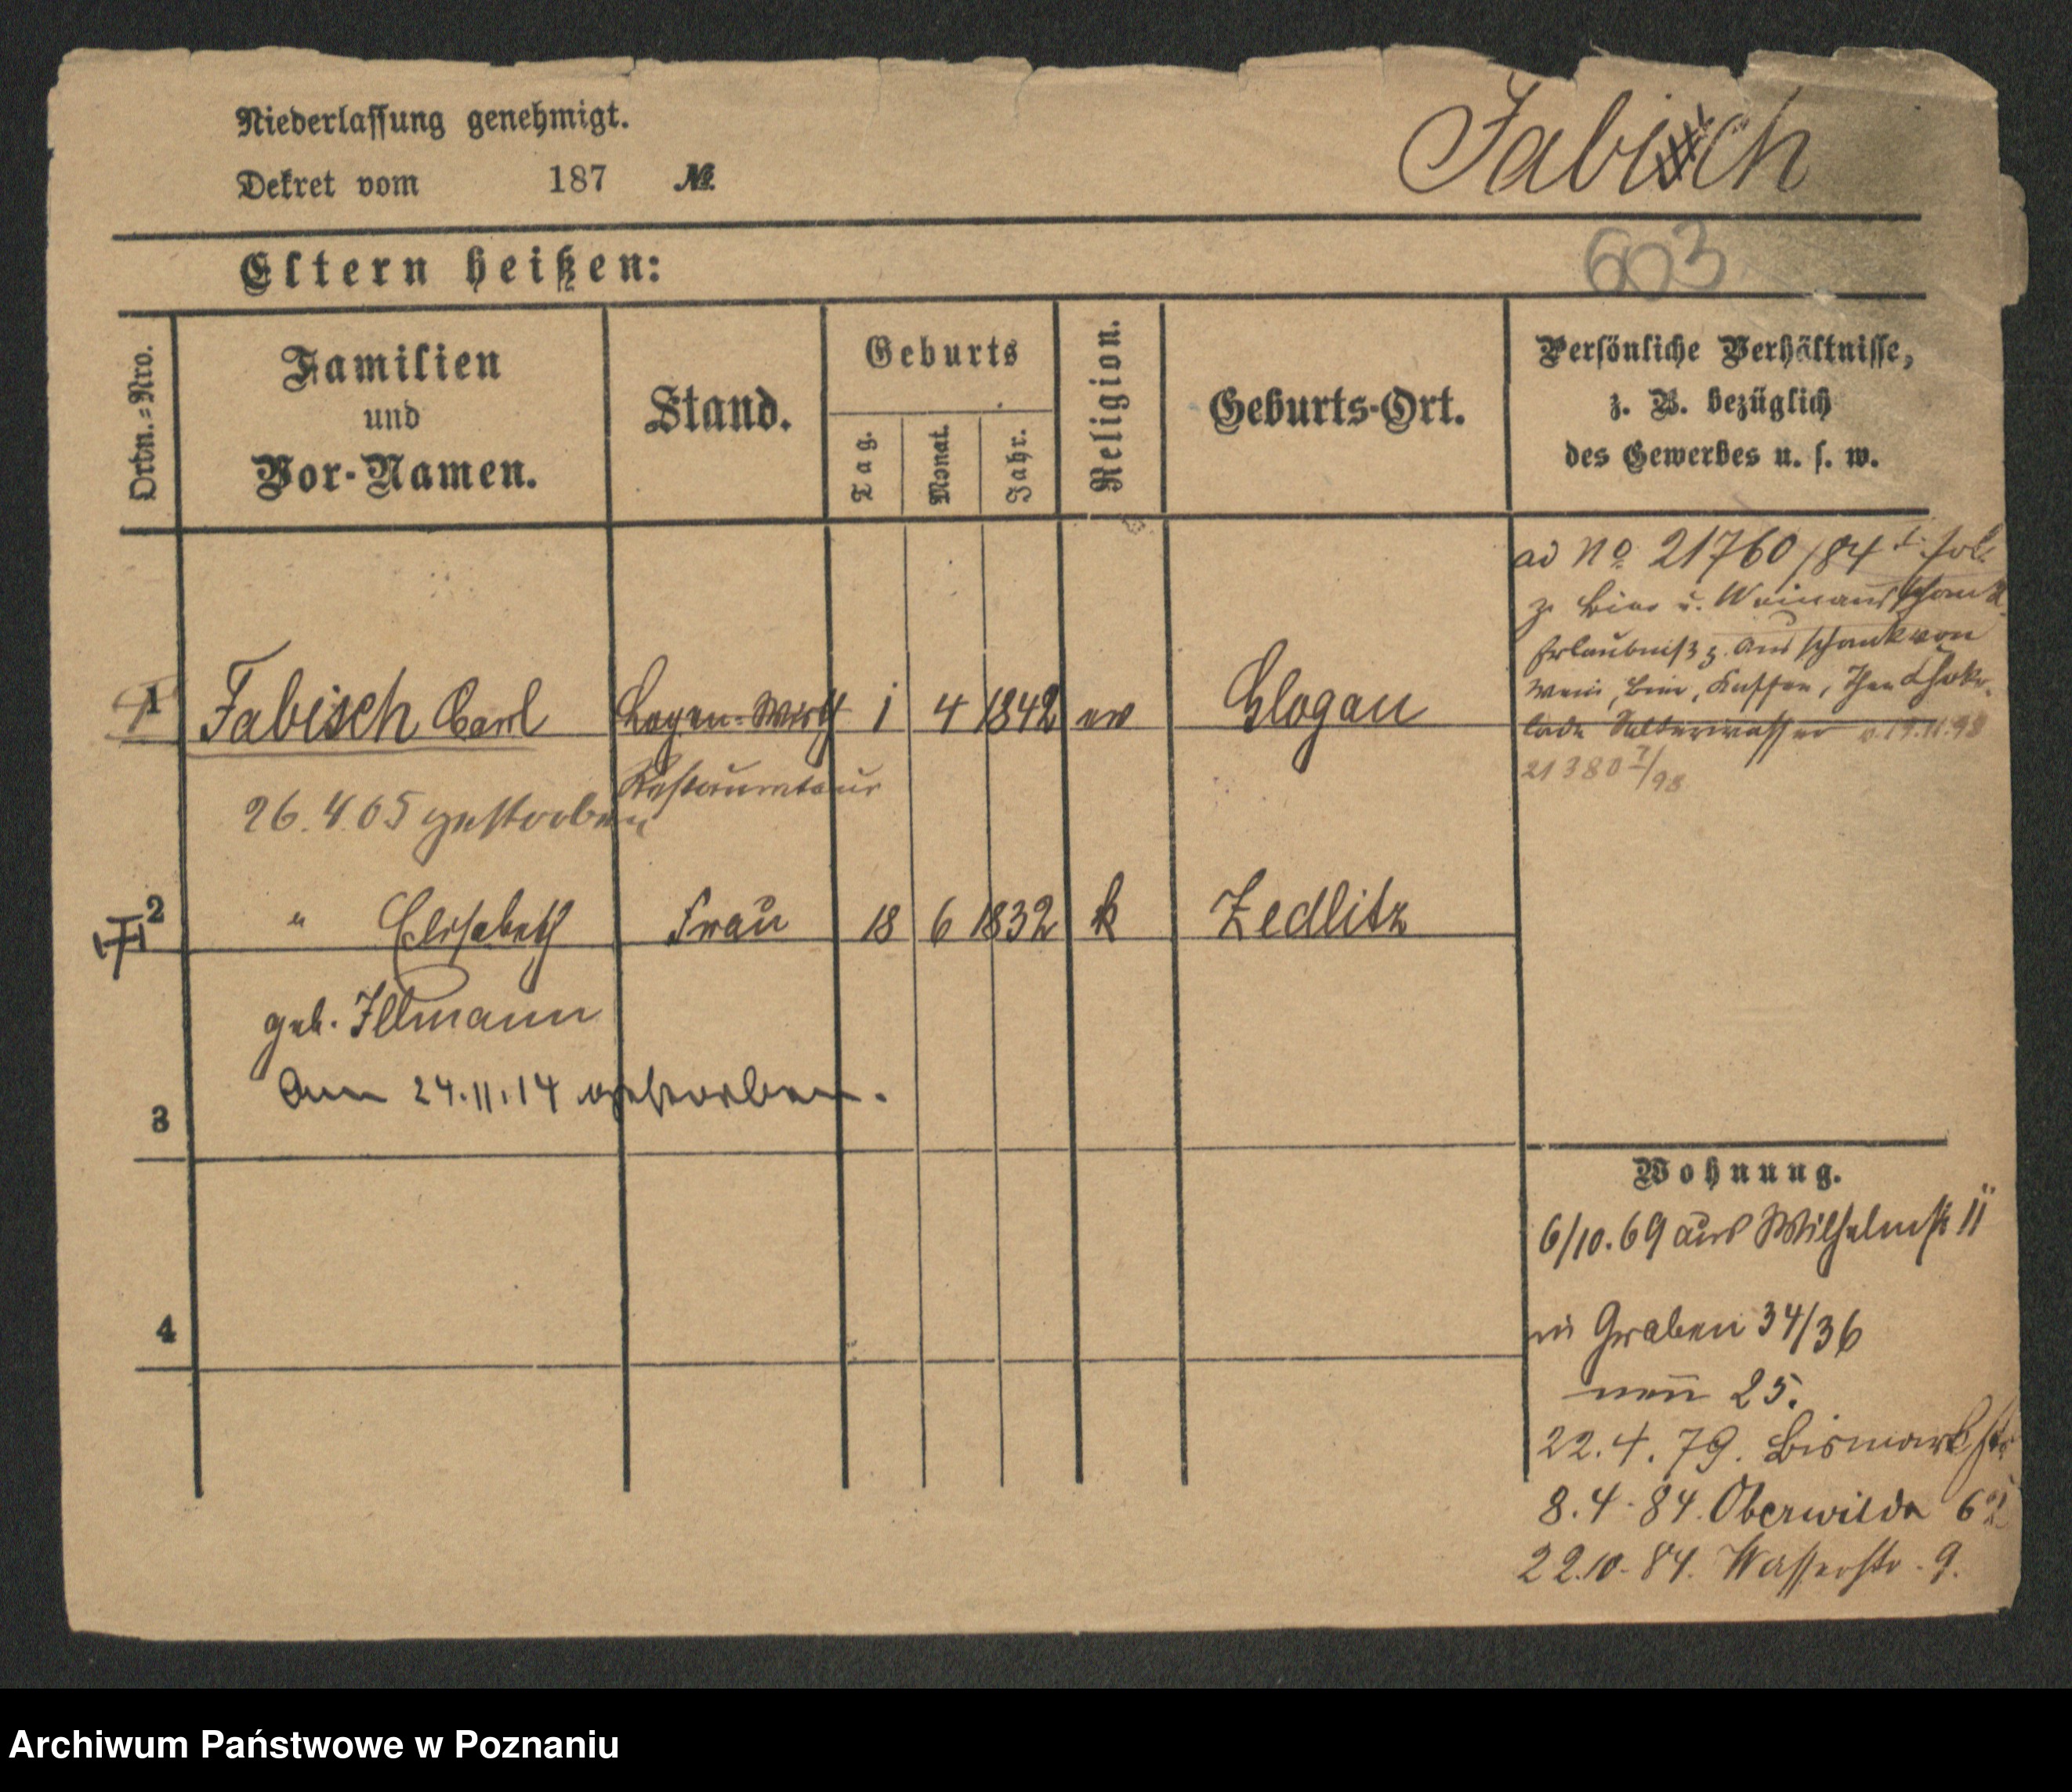 Niederlassung genehmigt.
Dekret vom 187 №.
Fabisch
603
Eltern heißen:
Ordn.-Nro.
Familien
und
Vor-Namen.
Stand.
Geburts
Tag.
Monat.
Jahr.
Religion.
Geburts-Ort.
Persönliche Verhältnisse,
z. B. bezüglich
des Gewerbes u. s. w.
ad No 21760/84
z. Bier u. Weinausschank
Erlaubniß z. Ausschank von
Wein, Bier, Kaffee, Thee Choko-
lade Selterwasser v. 19.11.98
21380 I/98
1 Fabisch Carl Logen-Wirth 1 4 1842 ev Glogau
Restaurateur
26.4.05 gestorben
2 " Elisabeth Frau 18 6 1832 k Zedlitz
geb. Illmann
am 24.11.14 gestorben.
3
4
Wohnung.
6/10.69 aus Wilhelmstr 11
in Graben 34/36
neu 25.
22.4.79. Bismarkstr
8.4.84. Oberwilda 6
22.10.84. Wasserstr. 9.
Archiwum Państwowe w Poznaniu